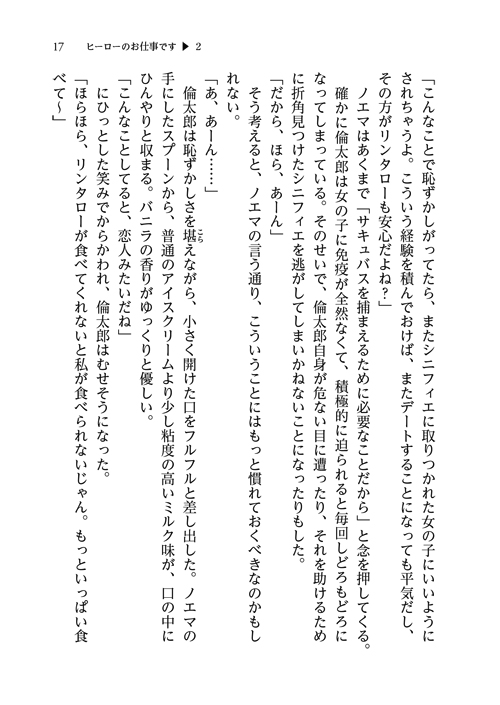 17　ヒーローのお仕事です▶2
「こんなことで恥ずかしがってたら、またシニフィエに取りつかれた女の子にいいように
されちゃうよ。こういう経験を積んでおけば、またデートすることになっても平気だし、
その方がリンタローも安心だよね？」
　ノエマはあくまで「サキュバスを捕まえるために必要なことだから」と念を押してくる。
　確かに倫太郎は女の子に免疫が全然なくて、積極的に迫られると毎回しどろもどろに
なってしまっている。そのせいで、倫太郎自身が危ない目に遭ったり、それを助けるため
に折角見つけたシニフィエを逃がしてしまいかねないことになったりもした。
「だから、ほら、あーん」
　そう考えると、ノエマの言う通り、こういうことにはもっと慣れておくべきなのかもし
れない。
「あ、あーん……」
　倫太郎は恥ずかしさを堪えながら、小さく開けた口をフルフルと差し出した。ノエマの
こら
手にしたスプーンから、普通のアイスクリームより少し粘度の高いミルク味が、口の中に
ひんやりと収まる。バニラの香りがゆっくりと優しい。
「こんなことしてると、恋人みたいだね」
　にひっとした笑みでからかわれ、倫太郎はむせそうになった。
「ほらほら、リンタローが食べてくれないと私が食べられないじゃん。もっといっぱい食
べて～」